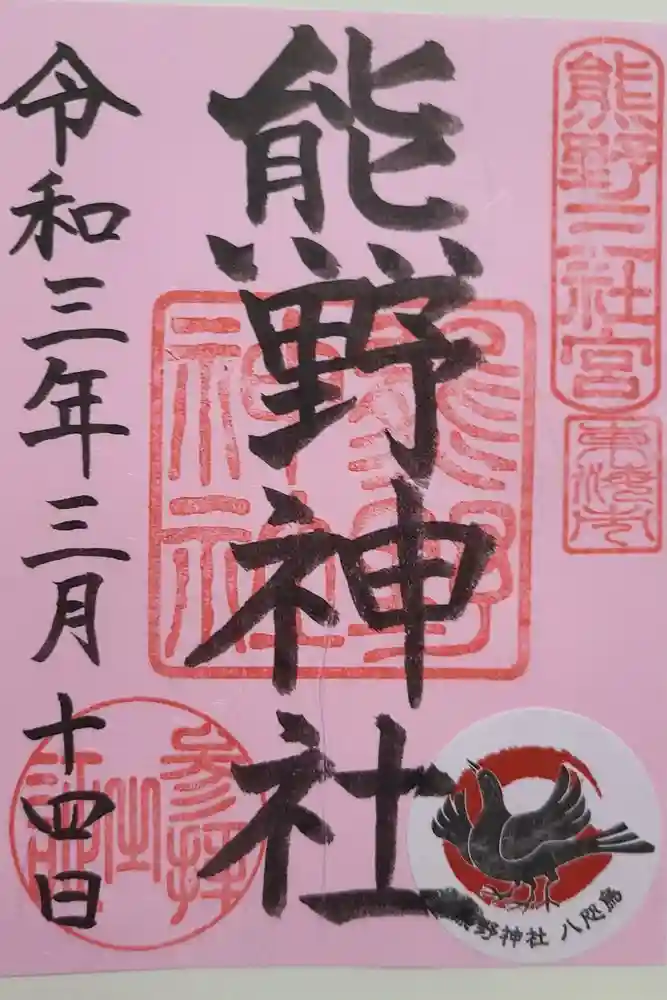 熊野三社宮
東海市
熊野神社
熊野神社
令和三年三月十四日
参拝之証
熊野神社 八咫烏